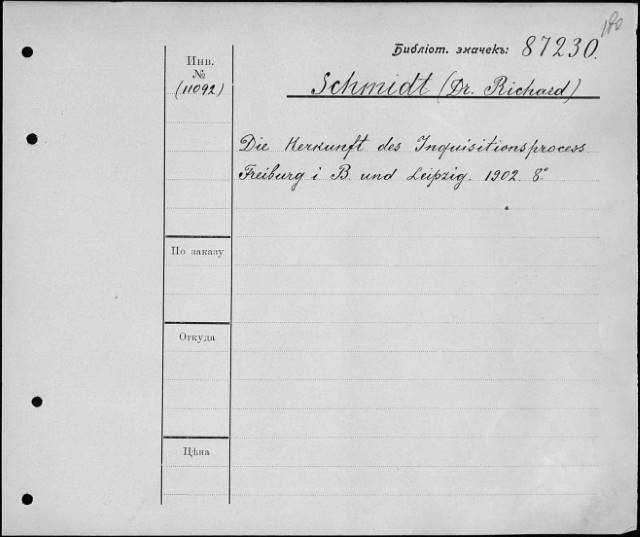 Библіот. значекъ: 87230.
Инв.
№
(11092)
Schmidt (Dr. Richard)
Die Herkunft des Inquisitionsprocess
Freiburg i B. und Leipzig. 1902. 8.º
По заказу
Откуда
Цѣна